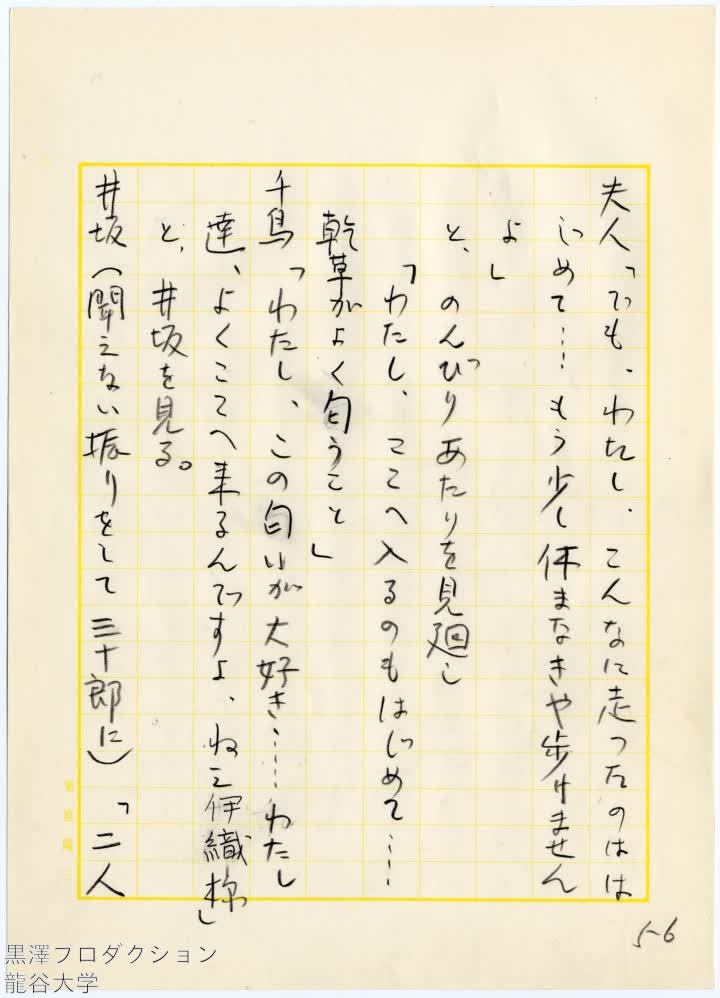 夫人「でも、わたし、こんなに走ったのはは
じめて…もう少し休まなきや歩けません
よ」
と、のんびりあたりを見廻し
「わたし、ここへ入るのもはじめて……
乾草がよく匂うこと」
千鳥「わたし、この匂いが大好き……わたし
達、よくここへ来るんですよ、ねえ伊織様」
と、井坂を見る。
井坂（聞えない振りをして三十郎に）「二人
5-6
黒澤プロダクション
龍谷大学